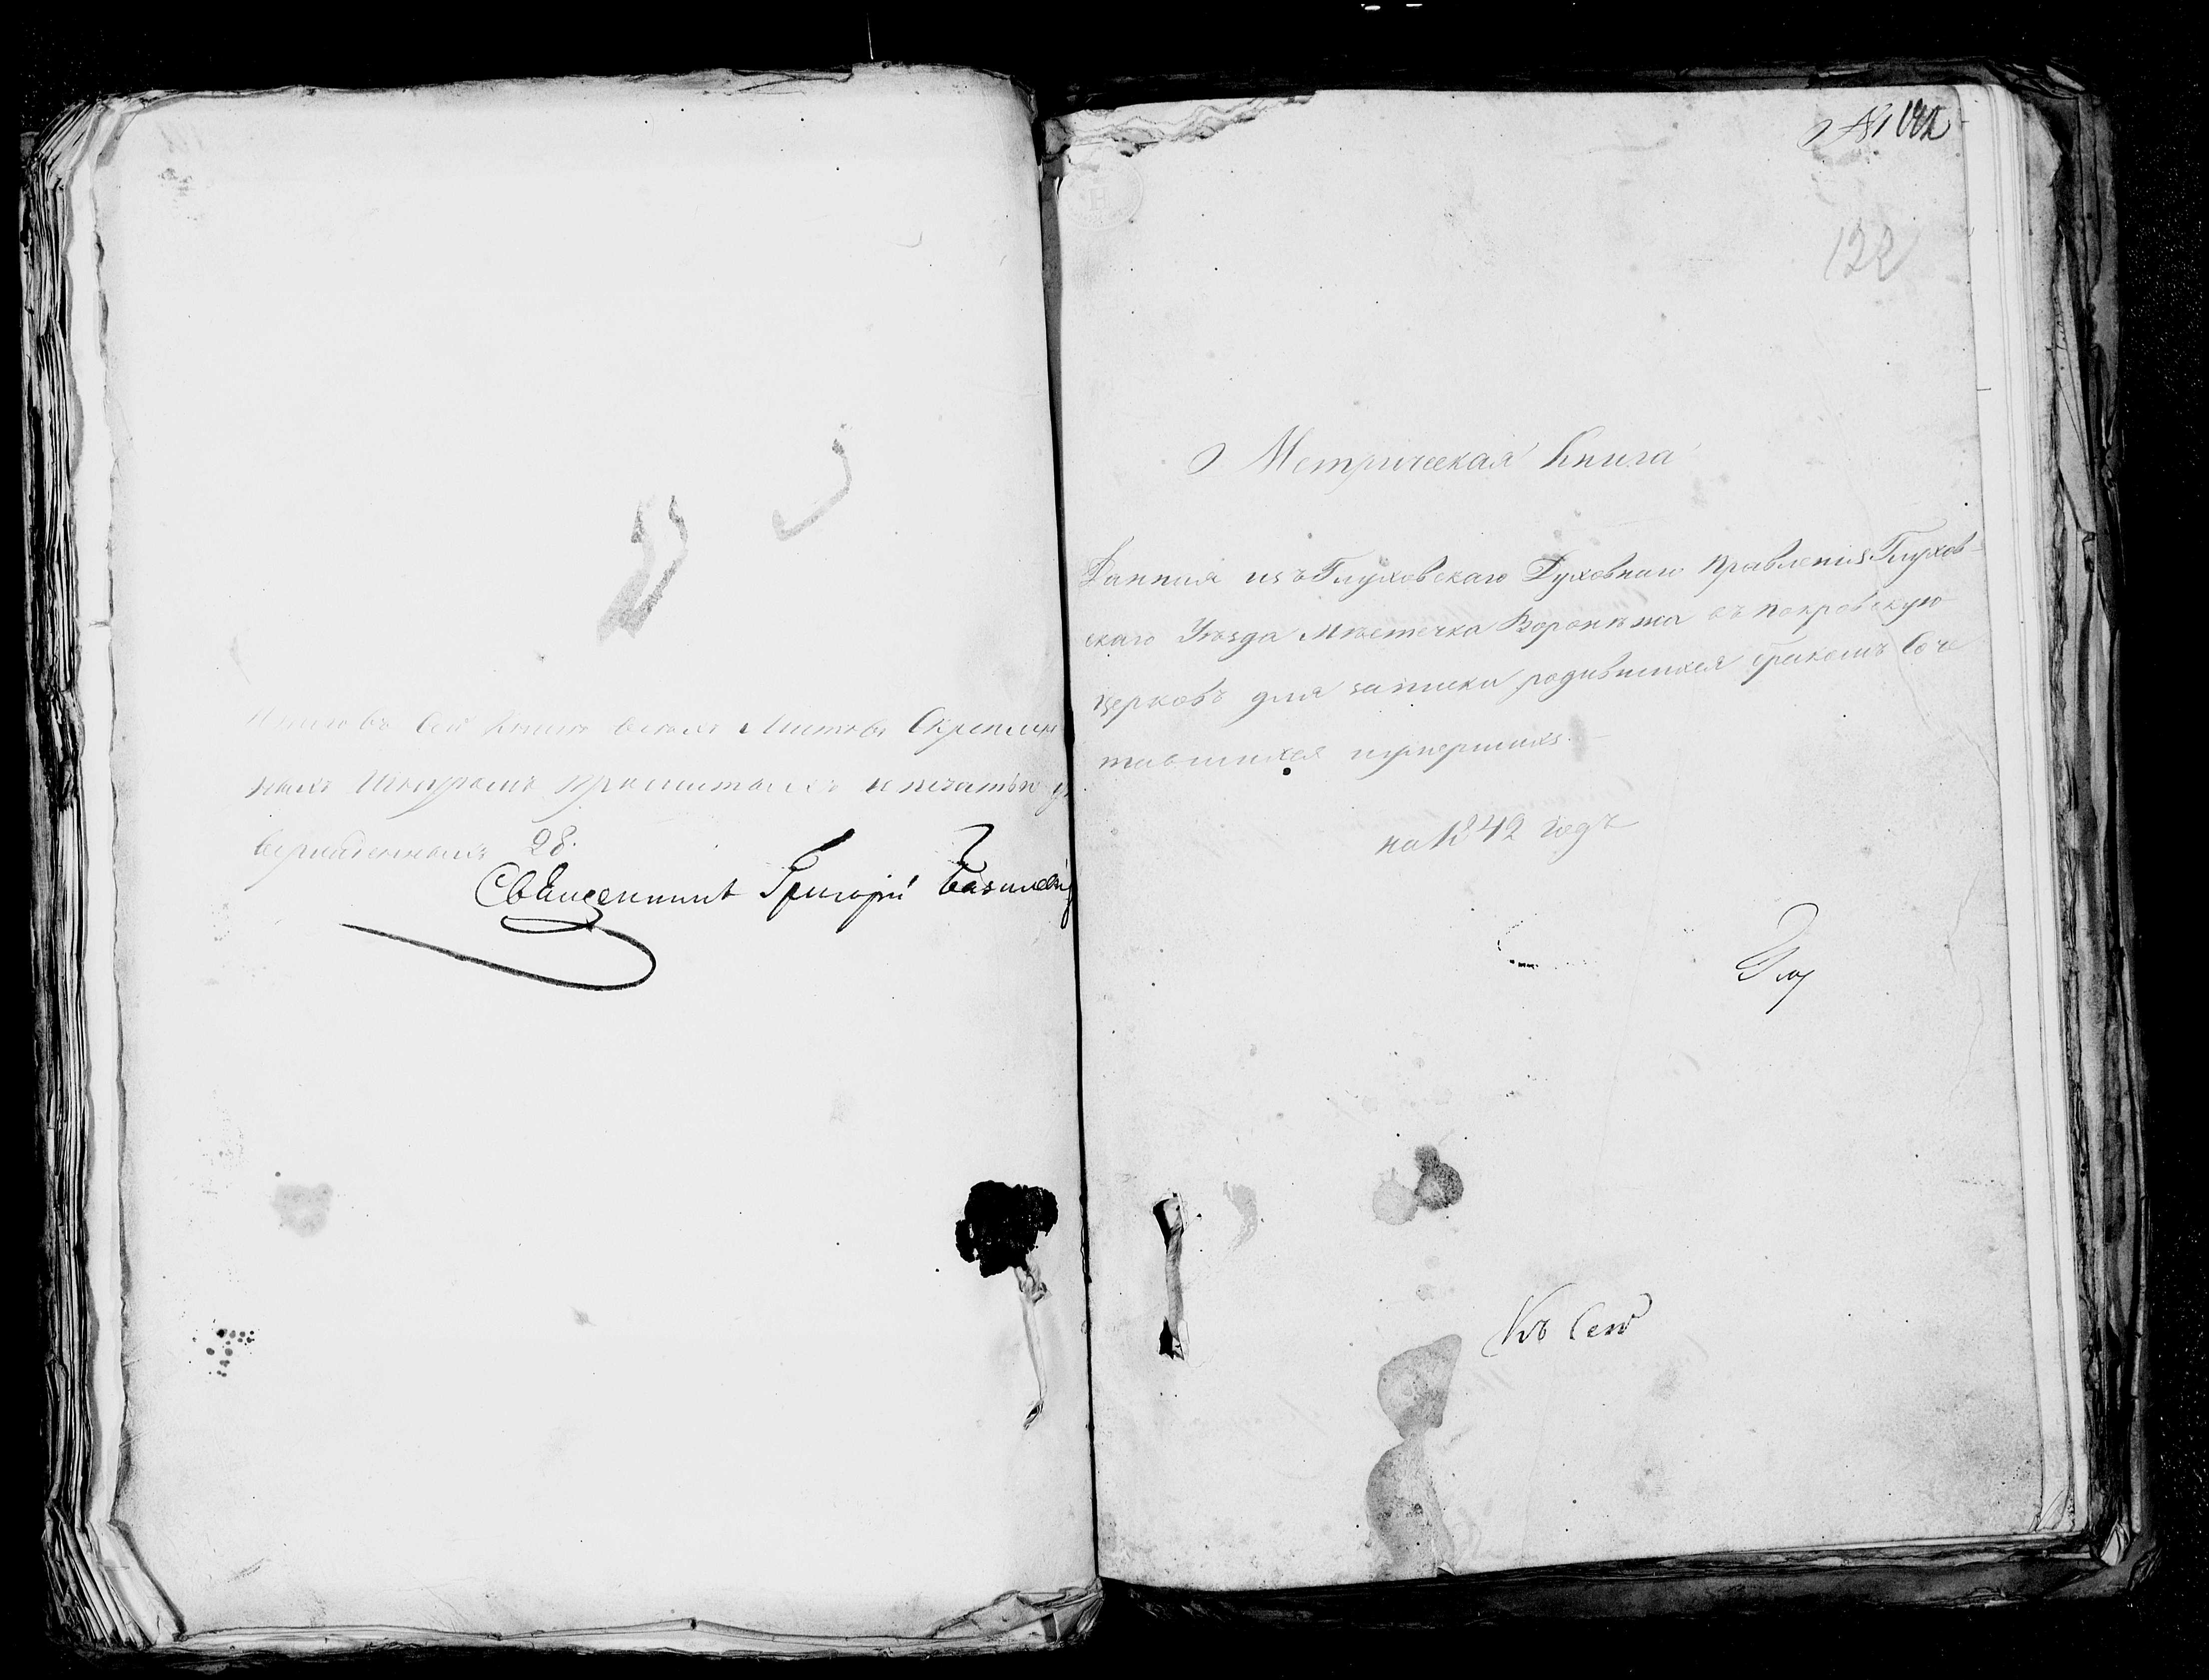 Итого въ сей книге всехъ листовъ скреплен
ныхъ шнуромъ прошитыхъ и печатью у
вержденныхъ 28.
Священникъ Григорій Базилевич
122
Метрическая Книга
Данная изъ Глуховскаго Духовнаго Правленія Глухов-
скаго Уезда Местечка Воронежа въ Покровскую
церковь для записки родившихся бракомъ Соче
тавшихся и умершихъ.
на 1842 годъ
Глу
Къ Сей